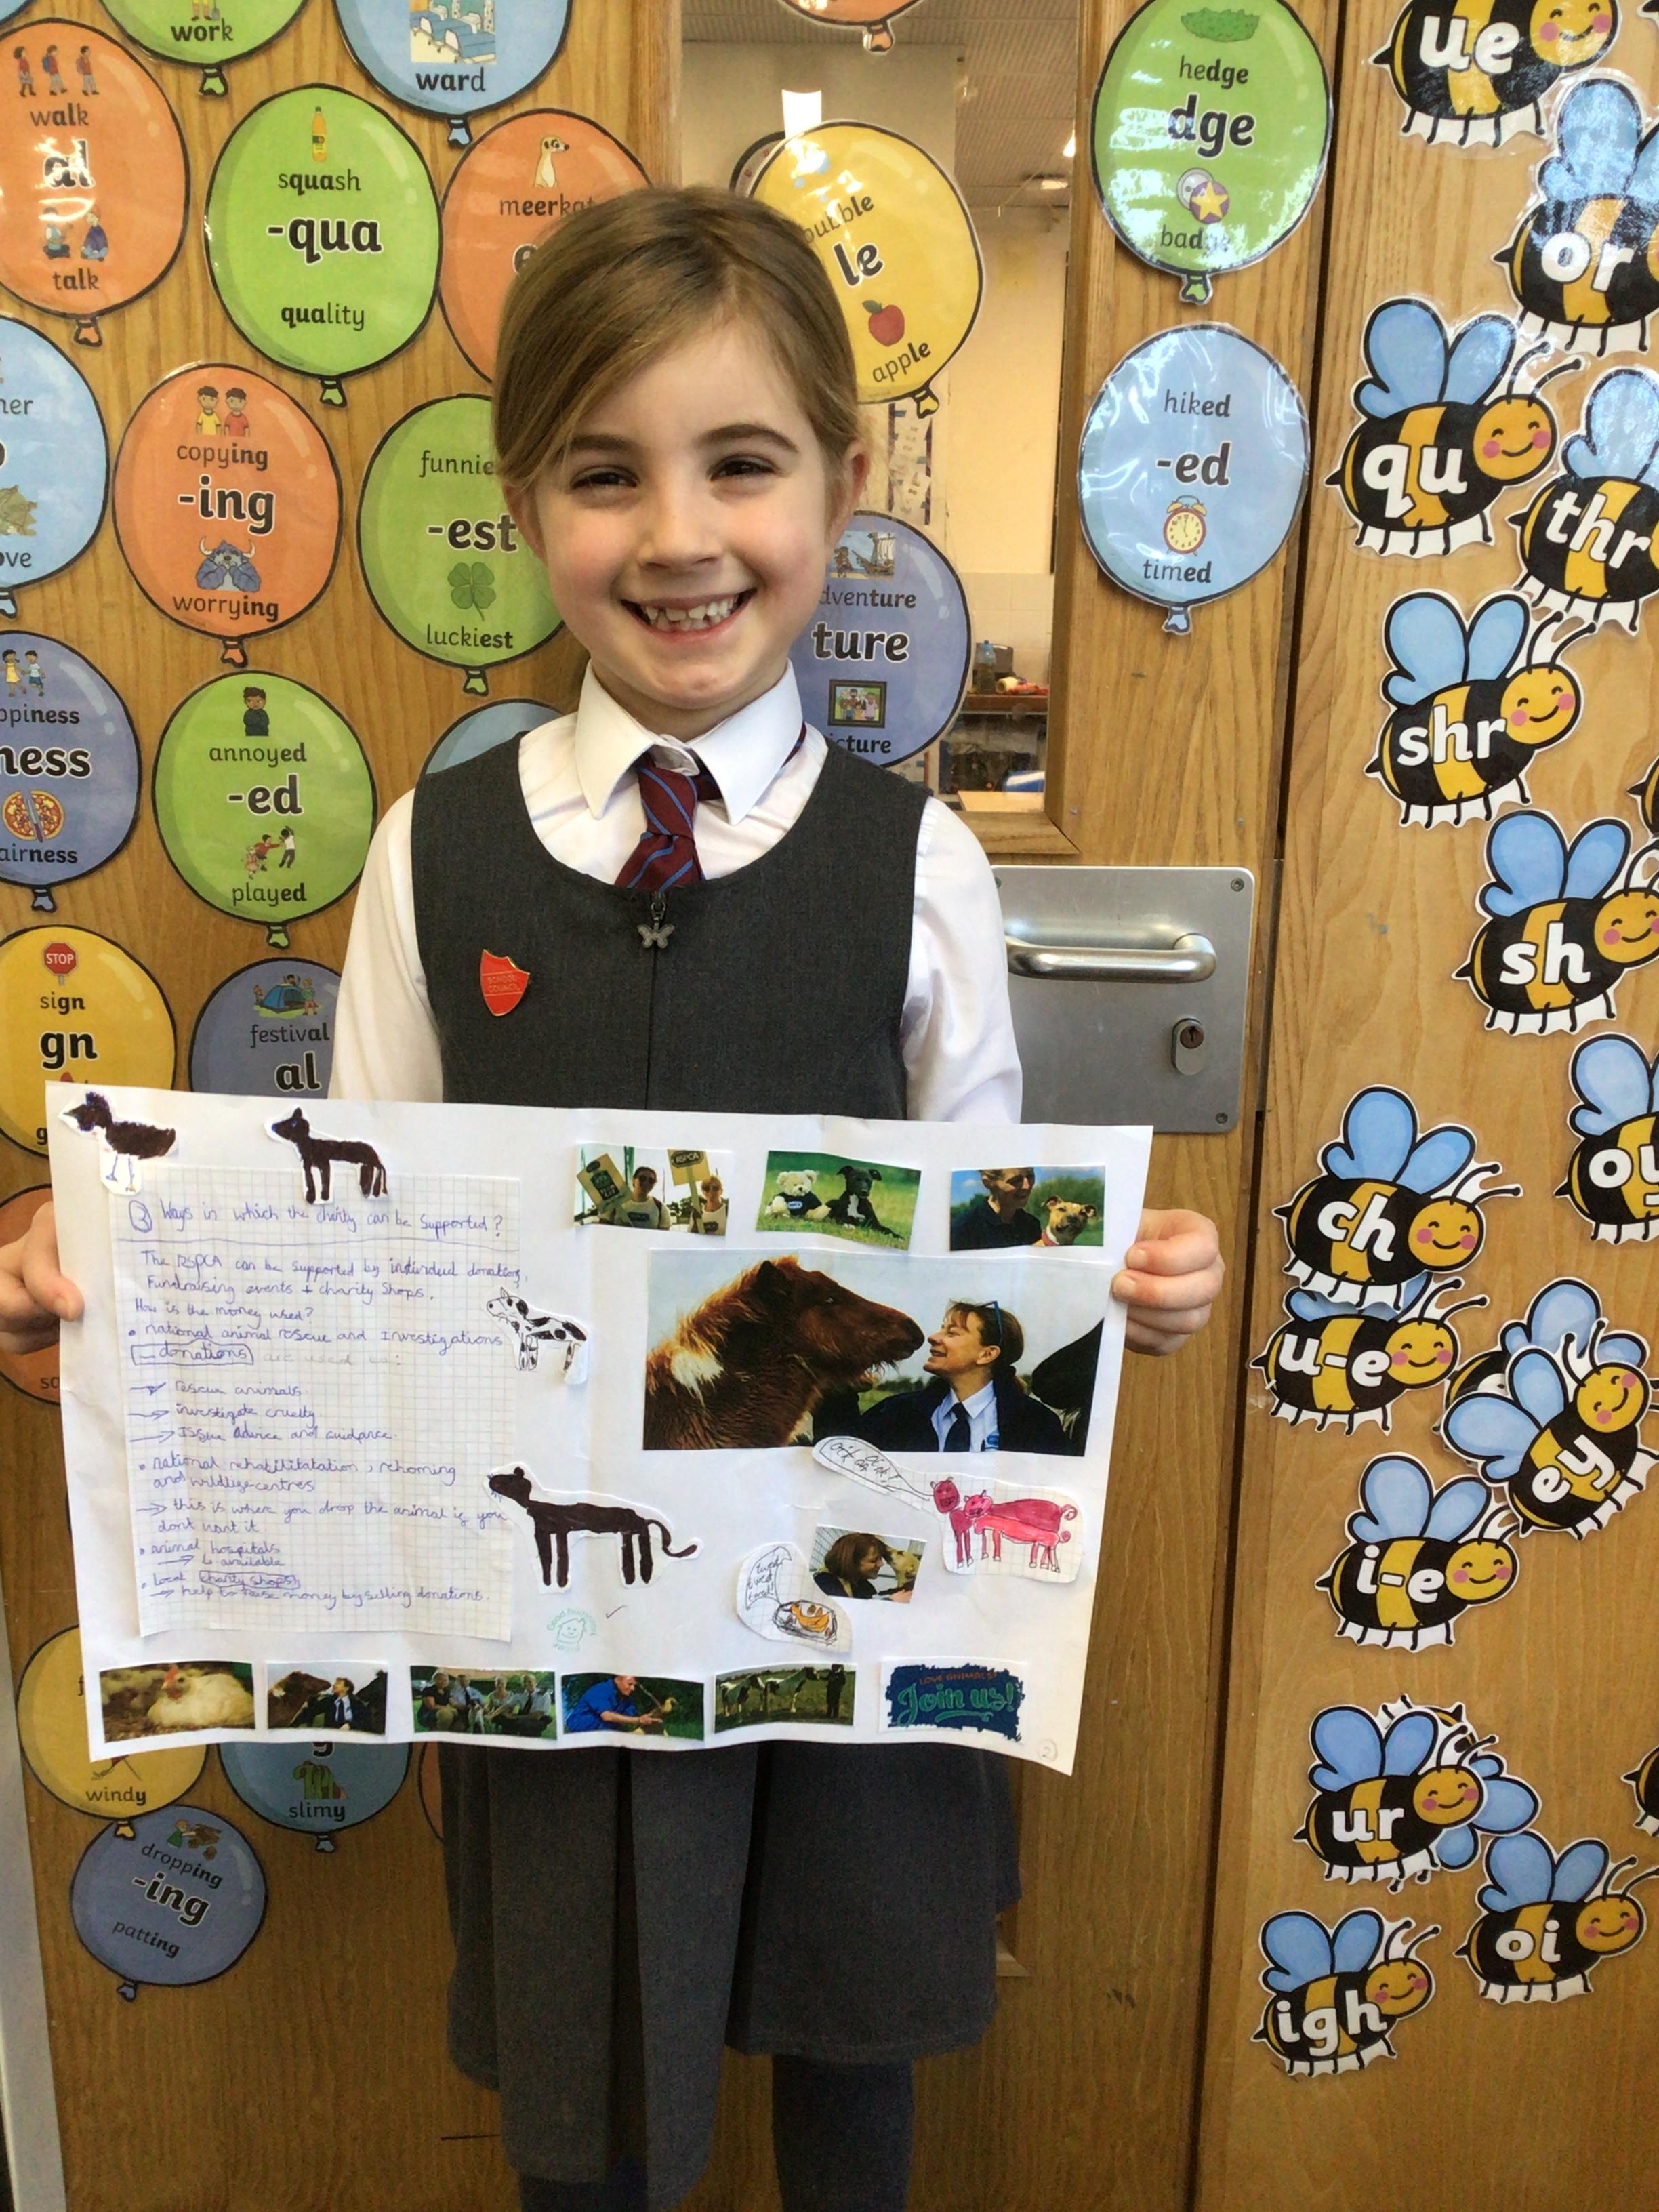 work
ward
walk
al
talk
squash
-qua
quality
meerkat
bubble
le
apple
hedge
dge
badge
ue
or
hiked
-ed
timed
qu
thr
copying
-ing
worrying
funnie
-est
luckiest
dventure
ture
cture
her
ove
ppiness
ness
airness
annoyed
-ed
played
shr
sh
STOP
sign
gn
festival
al
SCHOOL
COUNCIL
ch
oy
u-e
ey
i-e
ur
oi
igh
windy
slimy
dropping
-ing
patting
3 Ways in which the charity can be supported?
The RSPCA can be supported by individual donations,
Fundraising events + charity shops.
How is the money used?
• national animal rescue and Investigations
donations are used to:
→ rescue animals
→ investigate cruelty
→ Issue Advice and guidance.
• national rehabilitatation, rehoming
and wildlife centres
→ this is where you drop the animal if you
dont want it
• animal hospitals
→ 4 available
• Local charity shops
→ help to raise money by selling donations.
RSPCA
oink oink!
tweet
tweet
LOVE ANIMALS?
Join us!
2